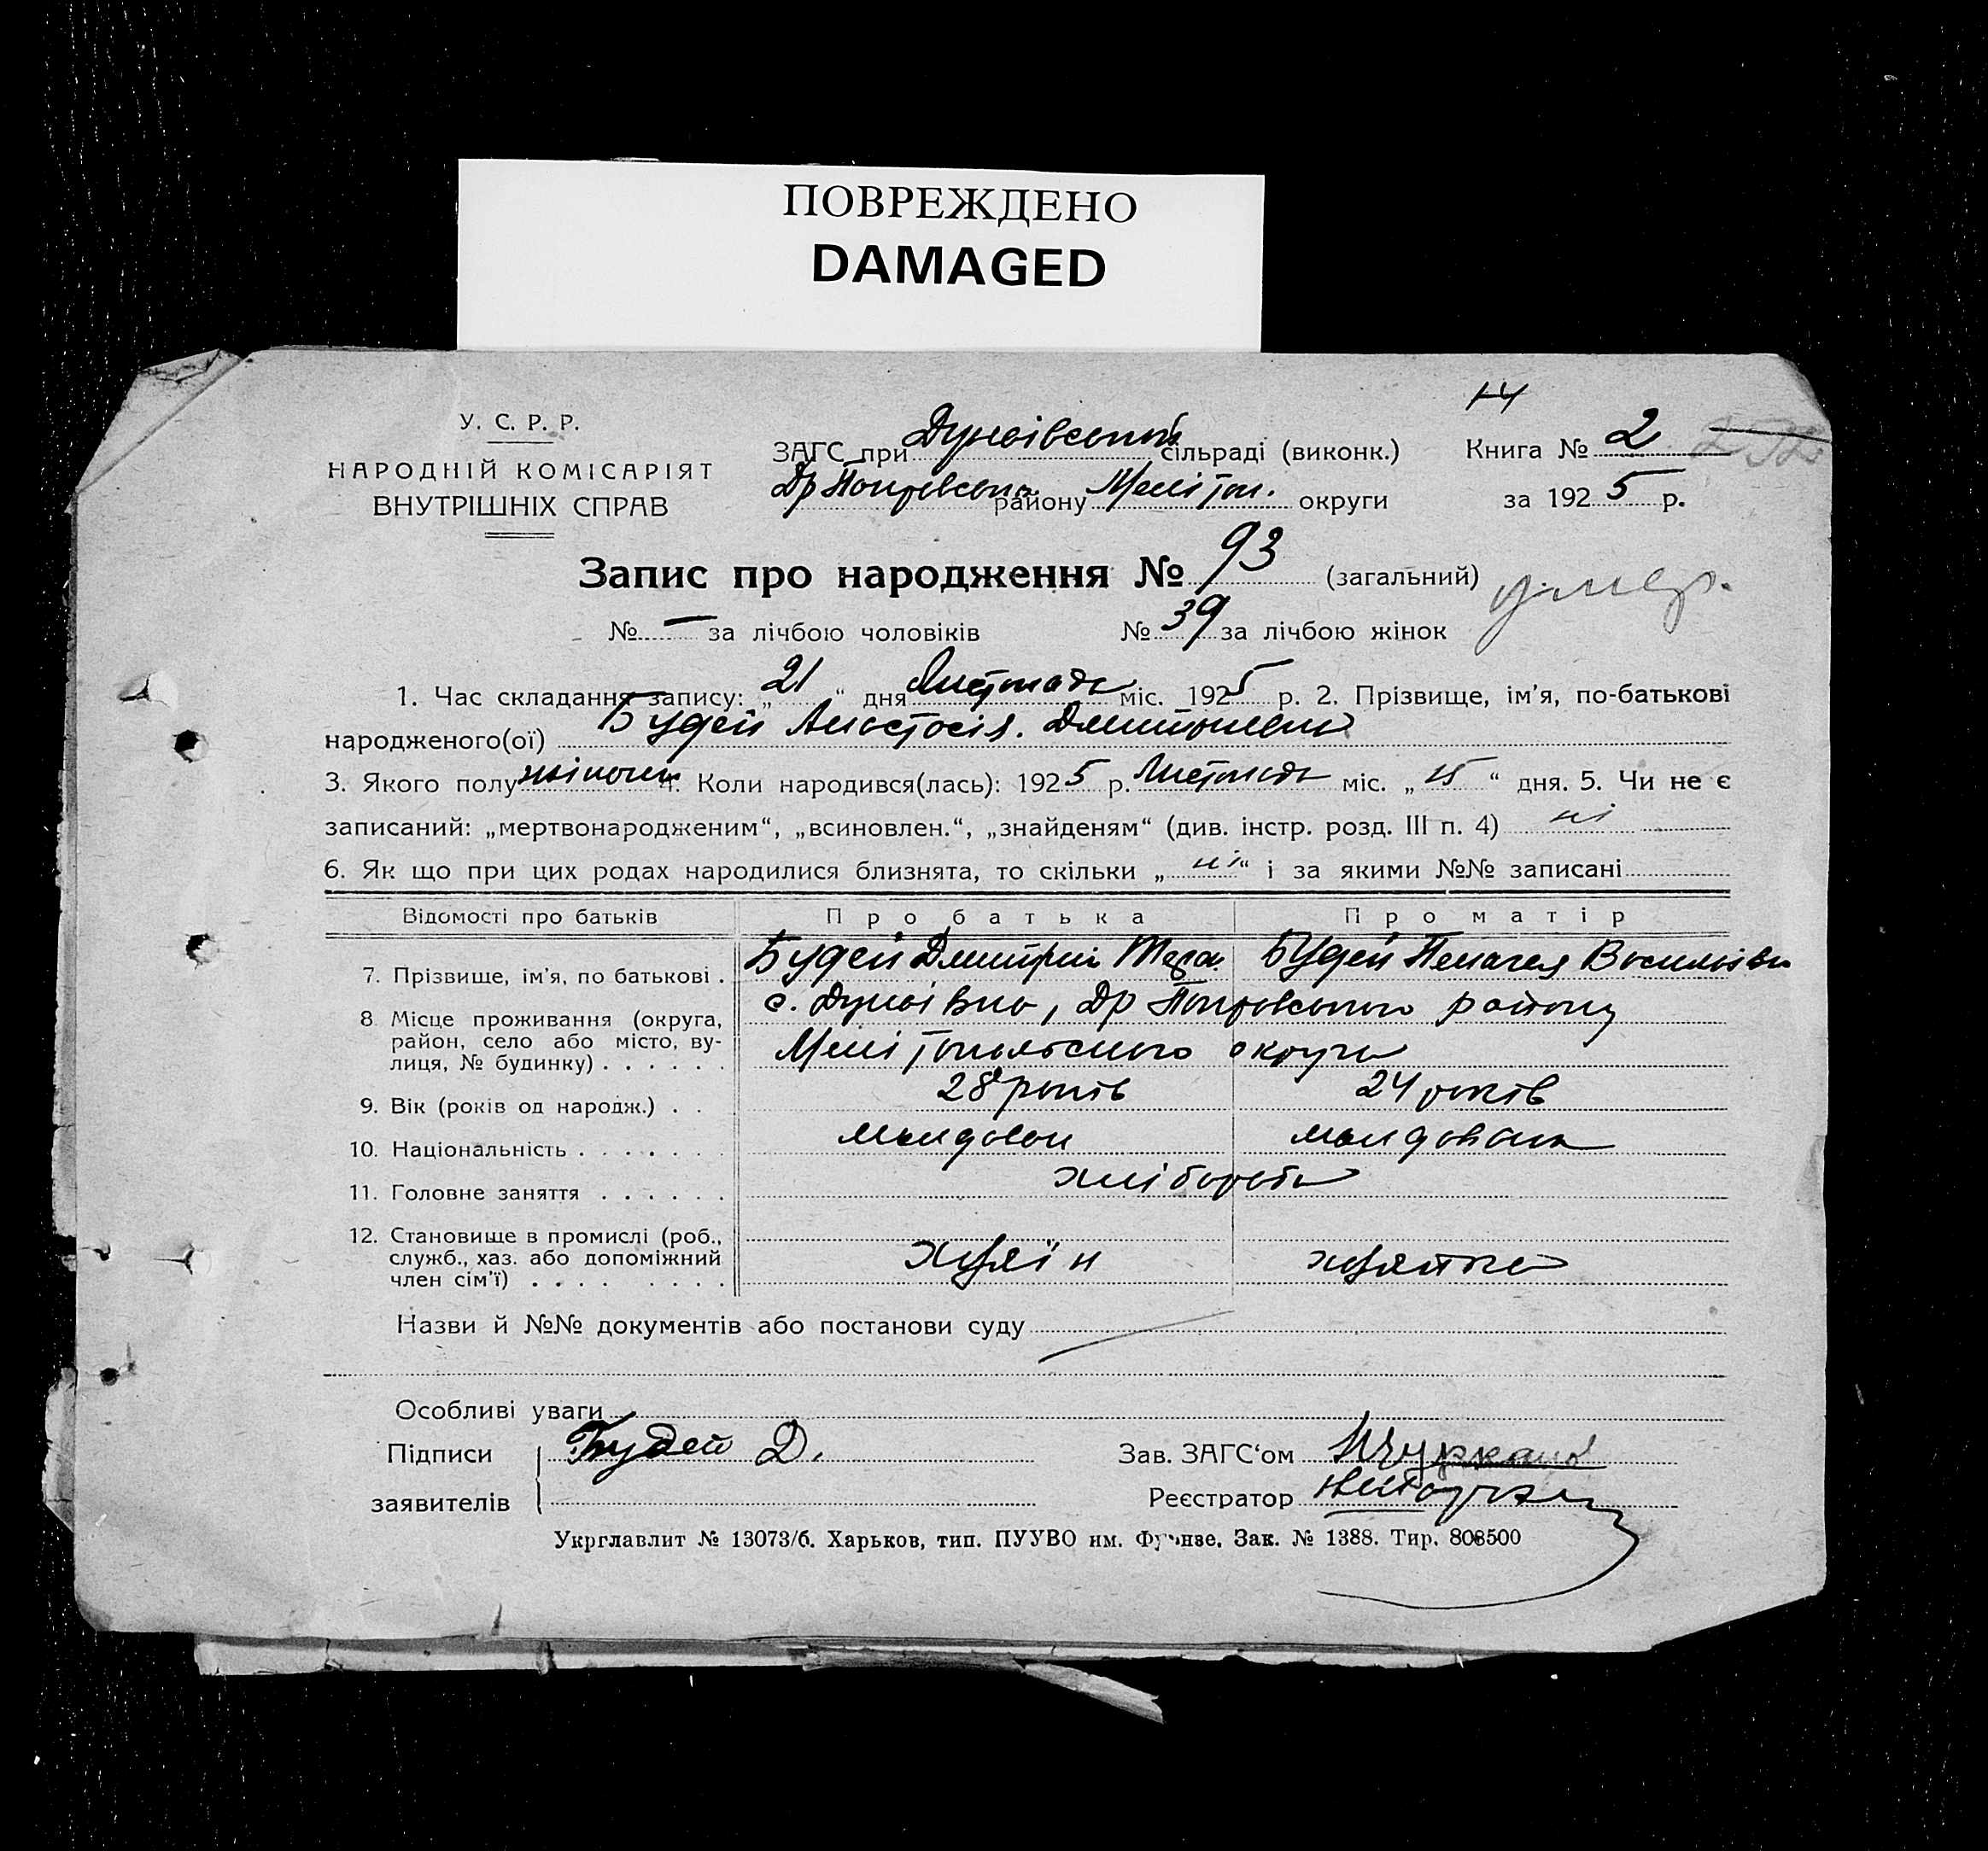 ПОВРЕЖДЕНО
DAMAGED
14
У. С. Р. Р.
НАРОДНІЙ КОМІСАРІЯТ
ВНУТРІШНІХ СПРАВ
ЗАГС при Дунаівській сільраді (виконк.) Книга № 2
района Мелітоп. округи за 1925 р.
Запис про народження № 93 (загальний) умер.
№ — за лічбою чоловіків № 39 за лічбою жінок
1. Час складання запису: „21“ дня Листопада міс. 1925 р. 2. Прізвище, ім'я, по-батькові
народженого(ої) Будей Анастасія. Дмитрівна
3. Якого полу жіночи 4. Коли народився(лась): 1925 р. Листопада міс. „15“ дня. 5. Чи не є
записаний: „мертвонародженим“, „всиновлен.“, „знайденям“ (див. інстр. розд. III п. 4) ні
6. Як що при цих родах народилися близнята, то скільки „ні“ і за якими №№ записані
Відомості про батьків Про батька Про матір
7. Прізвище, ім'я, по батькові . Будей Дмитрій Будей Пелагея Василівна
8 Місце проживання (округа, район, село або місто, ву- лиця, № будинку) . . . . . . с. Дунаівка, Др Покровського району
Мелітопольського округи
9. Вік (років од народж.) . . 28 років 24 років
10. Національність . . . . . . . молдован молдованка
11. Головне заняття . . . . . . хлібороби
12. Становище в промислі (роб., служб., хаз. або допоміжний член сім'ї) . . . . . . . . хозяїн хозяйка
Назви й №№ документів або постанови суду
Особливі уваги
Підписи Будей Д. Зав. ЗАГС‘ом
заявителів Реєстратор
Укрглавлит № 13073/б. Харьков, тип. ПУУВО им. Фрунзе. Зак. № 1388. Тир. 808500